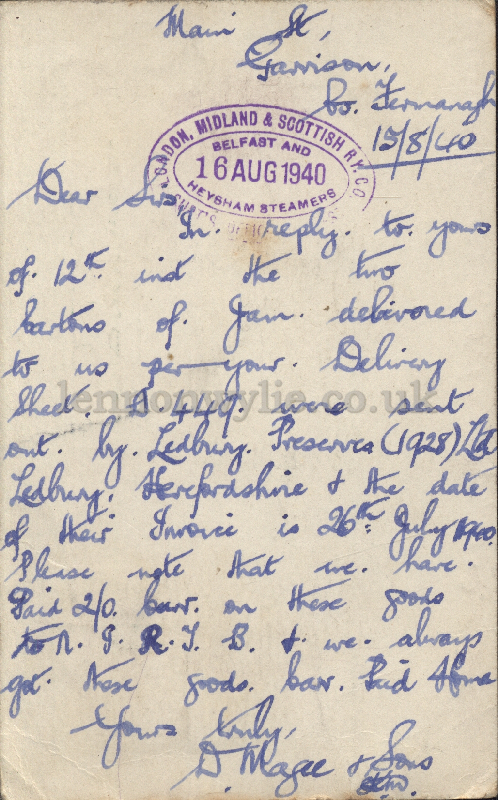 Main St,
Garrison,
Co. Fermanagh
15/8/40
LONDON, MIDLAND & SCOTTISH RY. CO
BELFAST AND
16 AUG 1940
HEYSHAM STEAMERS
Dear Sirs
In. reply. to. yours
of. 12th. inst the two
Cartons of. Jam. delivered
to us per your. Delivery
Sheet. D.449. were sent
out. by. Ledbury. Preserves (1928) Ltd
Ledbury. Herefordshire & the date
of their Invoice is 26th July 1940.
Please note that we. have.
Paid 2/0. Carr. on these goods
to N. I. R. T. B. & we. always
got. these goods. Carr. Paid Home
Yours truly,
D. Magee & Sons
lennonwylie.co.uk